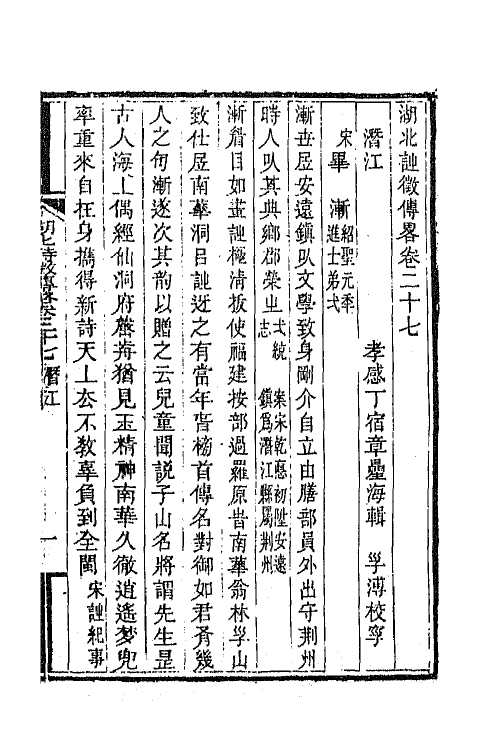 湖北詩徵傳畧卷二十七
潛江
孝感丁宿章壘海輯 孚溥校字
宋
畢 漸 紹聖元年進士弟弌
漸世居安遠鎮㠯文學致身剛介自立由膳部員外出守荆州
時人㠯其典鄉郡榮㞢 大統志 案宋乾德初陞安遠鎮爲潛江縣屬荆州
漸眉目如畫詩極清拔使福建按部過羅原旹南華翁林孚山
致仕居南華洞呂詩迓之有當年㫺榜首傳名對御如君有幾
人之句漸遂次其韵以贈之云兒童聞説子山名將謂先生是
古人海上偶經仙洞府蓆前猶見玉精神南華久徹逍遙夢兜
率重來自在身攜得新詩天上去不教辜負到全閩 宋詩紀事
湖北詩徵傳畧卷二十七 潛江
一